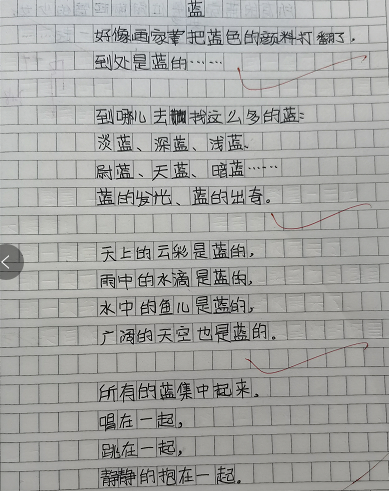 蓝
好像画家把蓝色的颜料打翻了。
到处是蓝的……
到哪儿去找这么多的蓝:
淡蓝、深蓝、浅蓝、
尉蓝、天蓝、暗蓝……
蓝的发光、蓝的出奇。
天上的云彩是蓝的,
雨中的水滴是蓝的,
水中的鱼儿是蓝的,
广阔的天空也是蓝的。
所有的蓝集中起来,
唱在一起,
跳在一起,
静静的抱在一起。